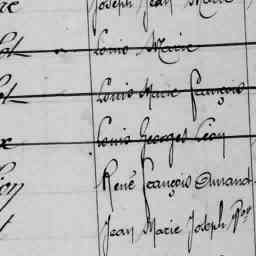 Joseph Jean Marie
Louis Marie
Louis Marie François
Louis Georges Léon
René François Durand
Jean Marie Joseph